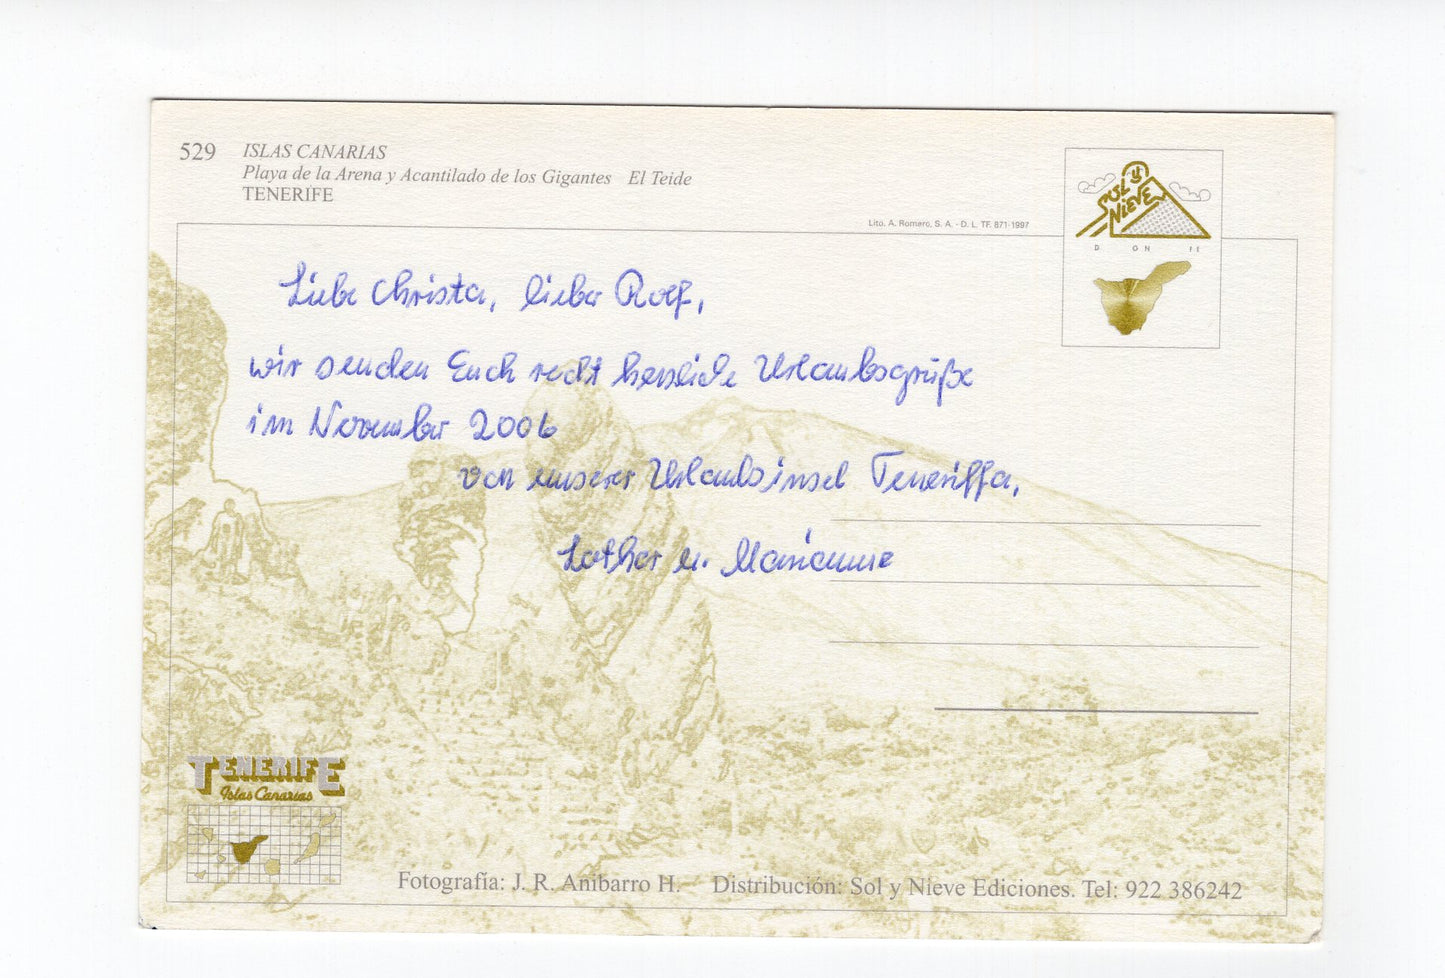 529 ISLAS CANARIAS
Playa de la Arena y Acantilado de los Gigantes El Teide
TENERIFE
Lito. A. Romero, S. A. - D. L. TF. 871-1997
SOL Y
NIEVE
Liebe Christa, lieber Rolf,
wir senden Euch recht herzliche Urlaubsgrüße
im November 2006
von unserer Urlaubsinsel Teneriffa,
Lothar u. Marianne
TENERIFE
Islas Canarias
Fotografía: J. R. Anibarro H. Distribución: Sol y Nieve Ediciones. Tel: 922 386242